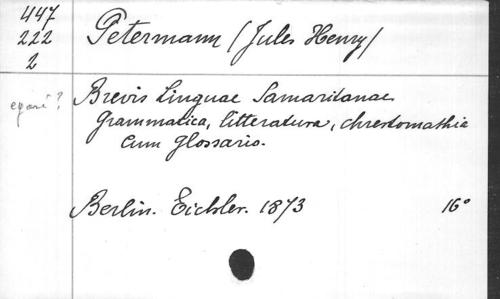 447
222
2
Petermann (Jules Henry)
Brevis Linguae Samaritanae
grammatica, litteratura, chrestomathia
cum glossario.
Berlin. Eichler. 1873 16°